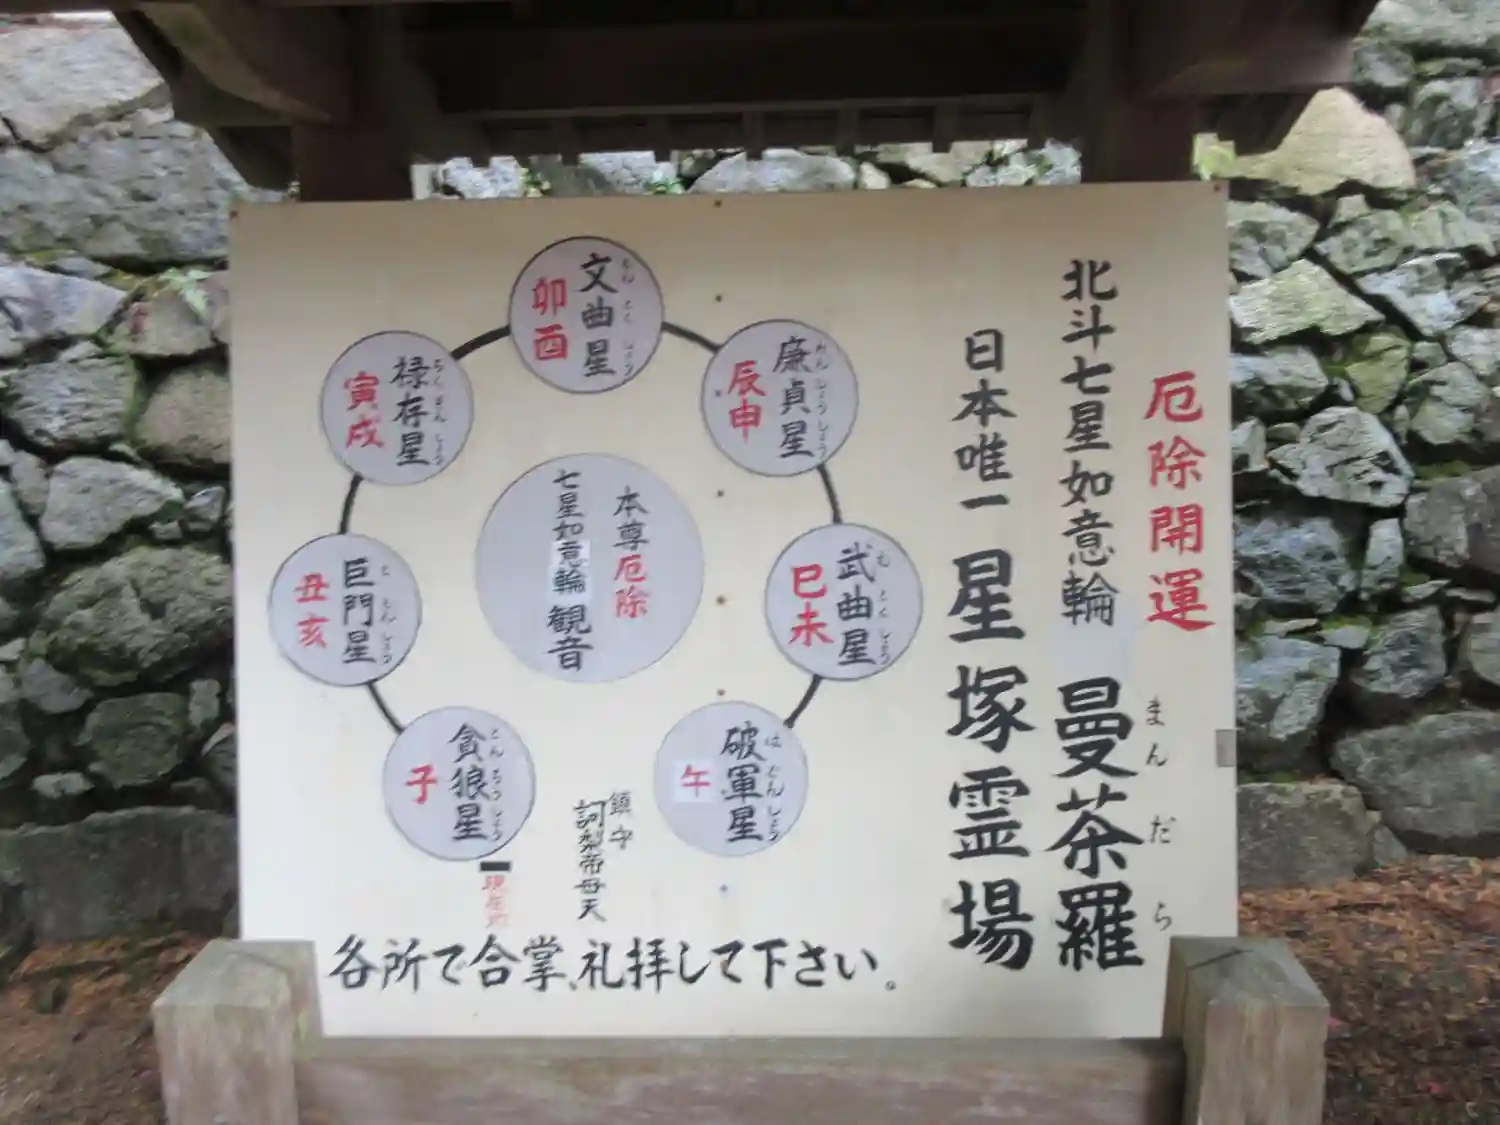 厄除開運
北斗七星如意輪 曼荼羅
まんだら
日本唯一 星塚霊場
廉貞星
れんじょうしょう
辰申
武曲星
むこくしょう
巳未
破軍星
はぐんしょう
午
文曲星
もんこくしょう
卯酉
本尊厄除
七星如意輪観音
禄存星
ろくぞんしょう
寅戌
巨門星
こもんしょう
丑亥
貪狼星
とんろうしょう
子
現在地
鎮守
訶梨帝母天
各所で合掌、礼拝して下さい。